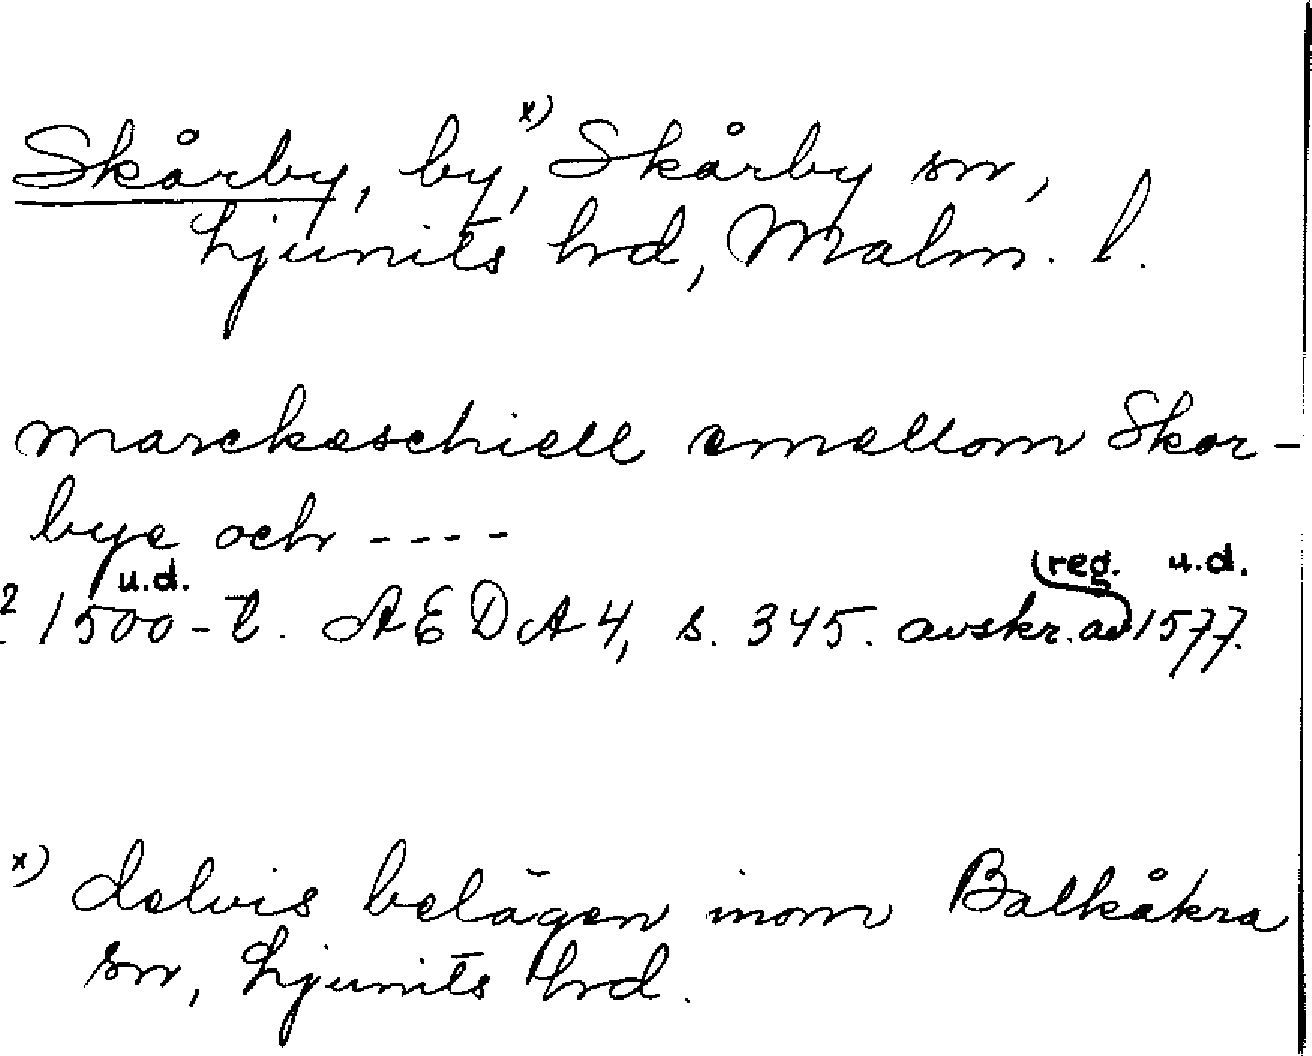 Skårby, by,x) Skårby sn,
Ljunits hd, Malm. l.
marckeschiell emellom Skor-
bye och ----
u.d. (reg. u.d.
1500-t. AEDA4, s. 345. avskr. av) 1577.
x) delvis belägen inom Balkåkra
sn, Ljunits hd.